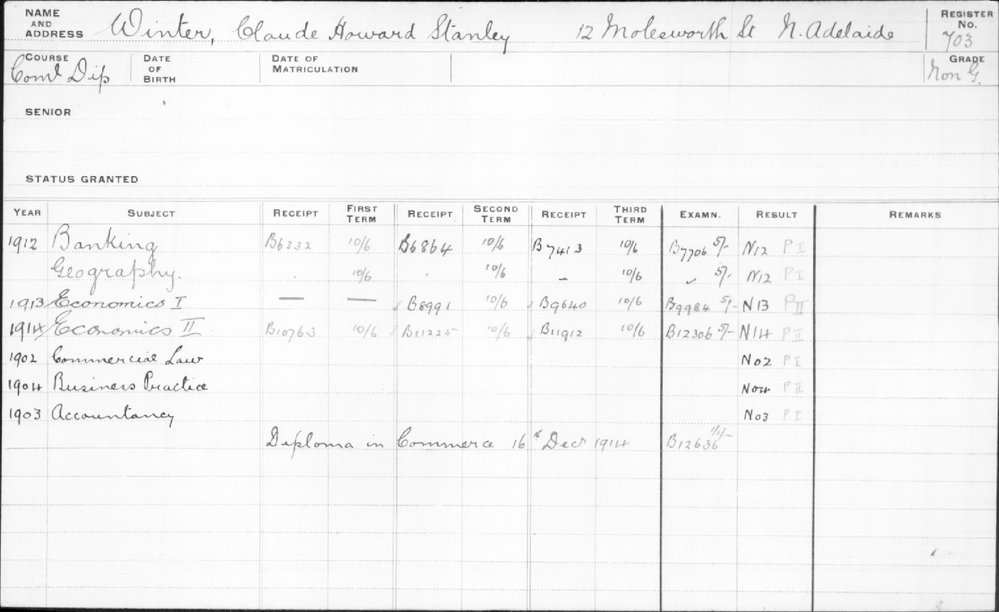 NAME AND ADDRESS Winter, Claude Howard Stanley 12 Molesworth St N. Adelaide REGISTER No. 703
COURSE Coml Dip DATE OF BIRTH DATE OF MATRICULATION GRADE Non G.
SENIOR
STATUS GRANTED
YEAR SUBJECT RECEIPT FIRST TERM RECEIPT SECOND TERM RECEIPT THIRD TERM EXAMN. RESULT REMARKS
1912 Banking B6332 10/6 B6864 10/6 B7413 10/6 B7706 5/- N12 P I
Geography. 10/6 10/6 10/6 5/- N12 P I
1913 Economics I — — B8991 10/6 B9640 10/6 B9984 5/- N13 P II
1914 Economics II B10763 10/6 B11225 10/6 B11912 10/6 B12306 5/- N14 P II
1902 Commercial Law No2 P I
1904 Business Practice No4 P II
1903 Accountancy No3 P I
Diploma in Commerce 16th Decr 1914 B12636